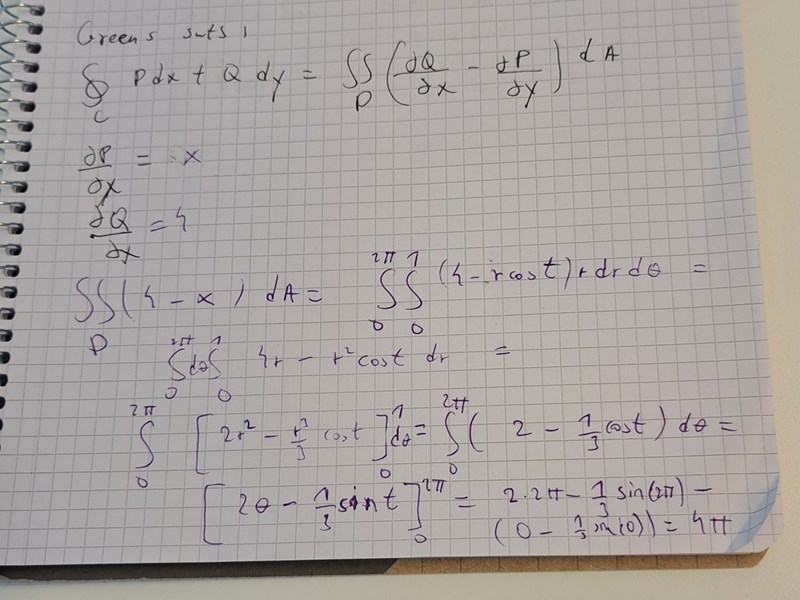 Greens sats:
∮_C Pdx + Q dy = ∬_D (∂Q/∂x - ∂P/∂y) dA
∂P/∂y = x
∂Q/∂x = 4
∬_D (4 - x) dA = ∫_0^{2π} ∫_0^1 (4 - r cos t) r dr dθ =
∫_0^{2π} dθ ∫_0^1 4r - r² cos t dr =
∫_0^{2π} [2r² - r³/3 cos t]_0^1 dθ = ∫_0^{2π} (2 - 1/3 cos t) dθ =
[2θ - 1/3 sin t]_0^{2π} = 2·2π - 1/3 sin(2π) -
(0 - 1/3 sin(0)) = 4π